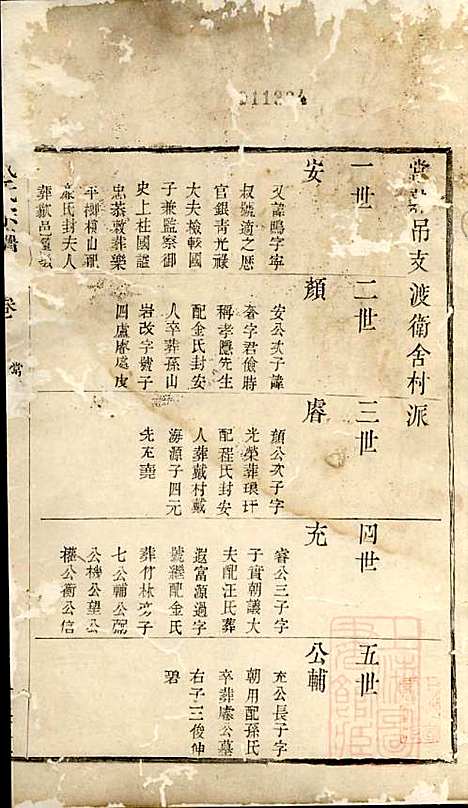 011384
吊支渡衛舍村派
一世
安
又諱鳴字寜
叔號適之歴
官銀青光祿
大夫檢較國
子兼監察御
史上柱國諡
忠恭敕葬樂
平 橫山配
氏封夫人
葬歙邑
二世
顏
安公次子諱
字君儉時
稱孝隱先生
配金氏封安
人卒葬孫山
岩改字號子
四盧睿處虔
三世
睿
顏公次子字
光榮葬琅玕
配程氏封安
人葬戴村戴
海源子四元
先充堯
四世
充
睿公三子字
子賓朝議大
夫配汪氏葬
遐富源過字
號繼配金氏
葬竹林 子
七公輔公弼
公機公望公
權公衡公信
五世
公輔
充公長子字
朝用配孫氏
卒葬 公墓
右子三俊伸
碧
氏宗譜
卷
常